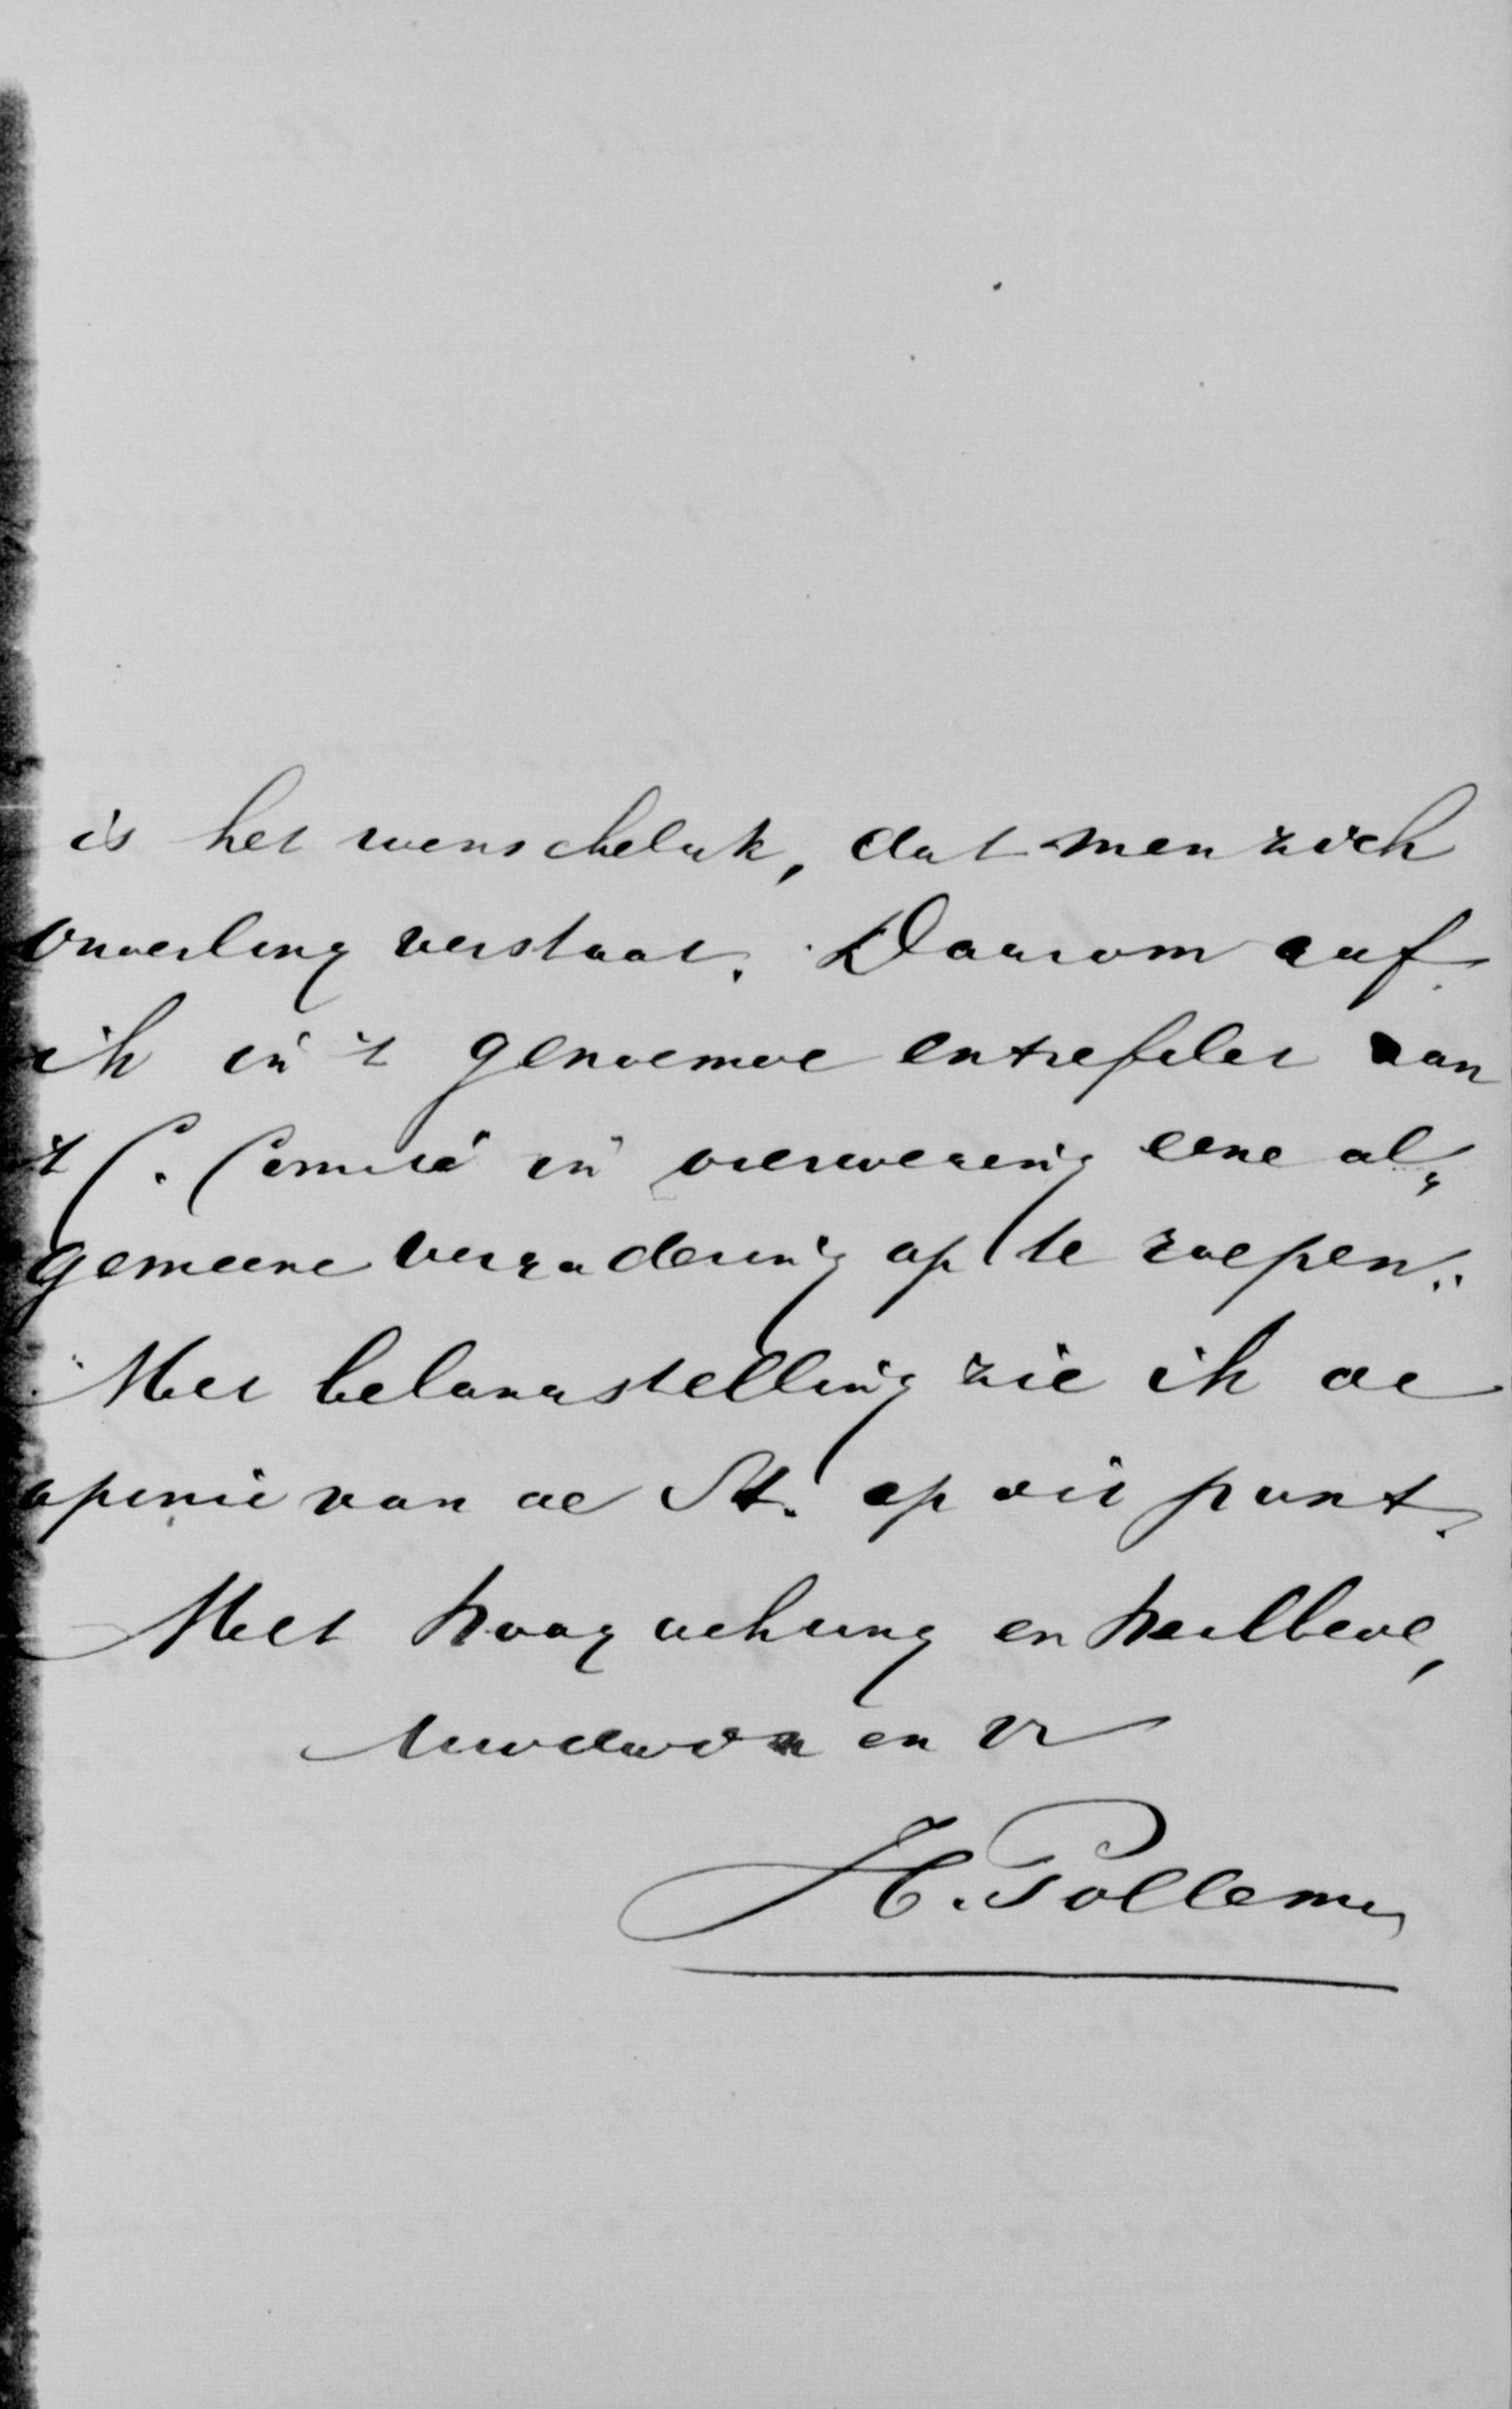 is het wenschelijk, dat men zich
onderling verstaat. Daarom gaf
ik in 't genoemde entrefilet aan
't C. Comité in overweging eene al„
gemeene vergadering op te roepen.
Met belangstelling zie ik de
opinie van de St. op dit punt.
Met hoogachting en heilbede,
Uw dw dr en br
H. Pollema